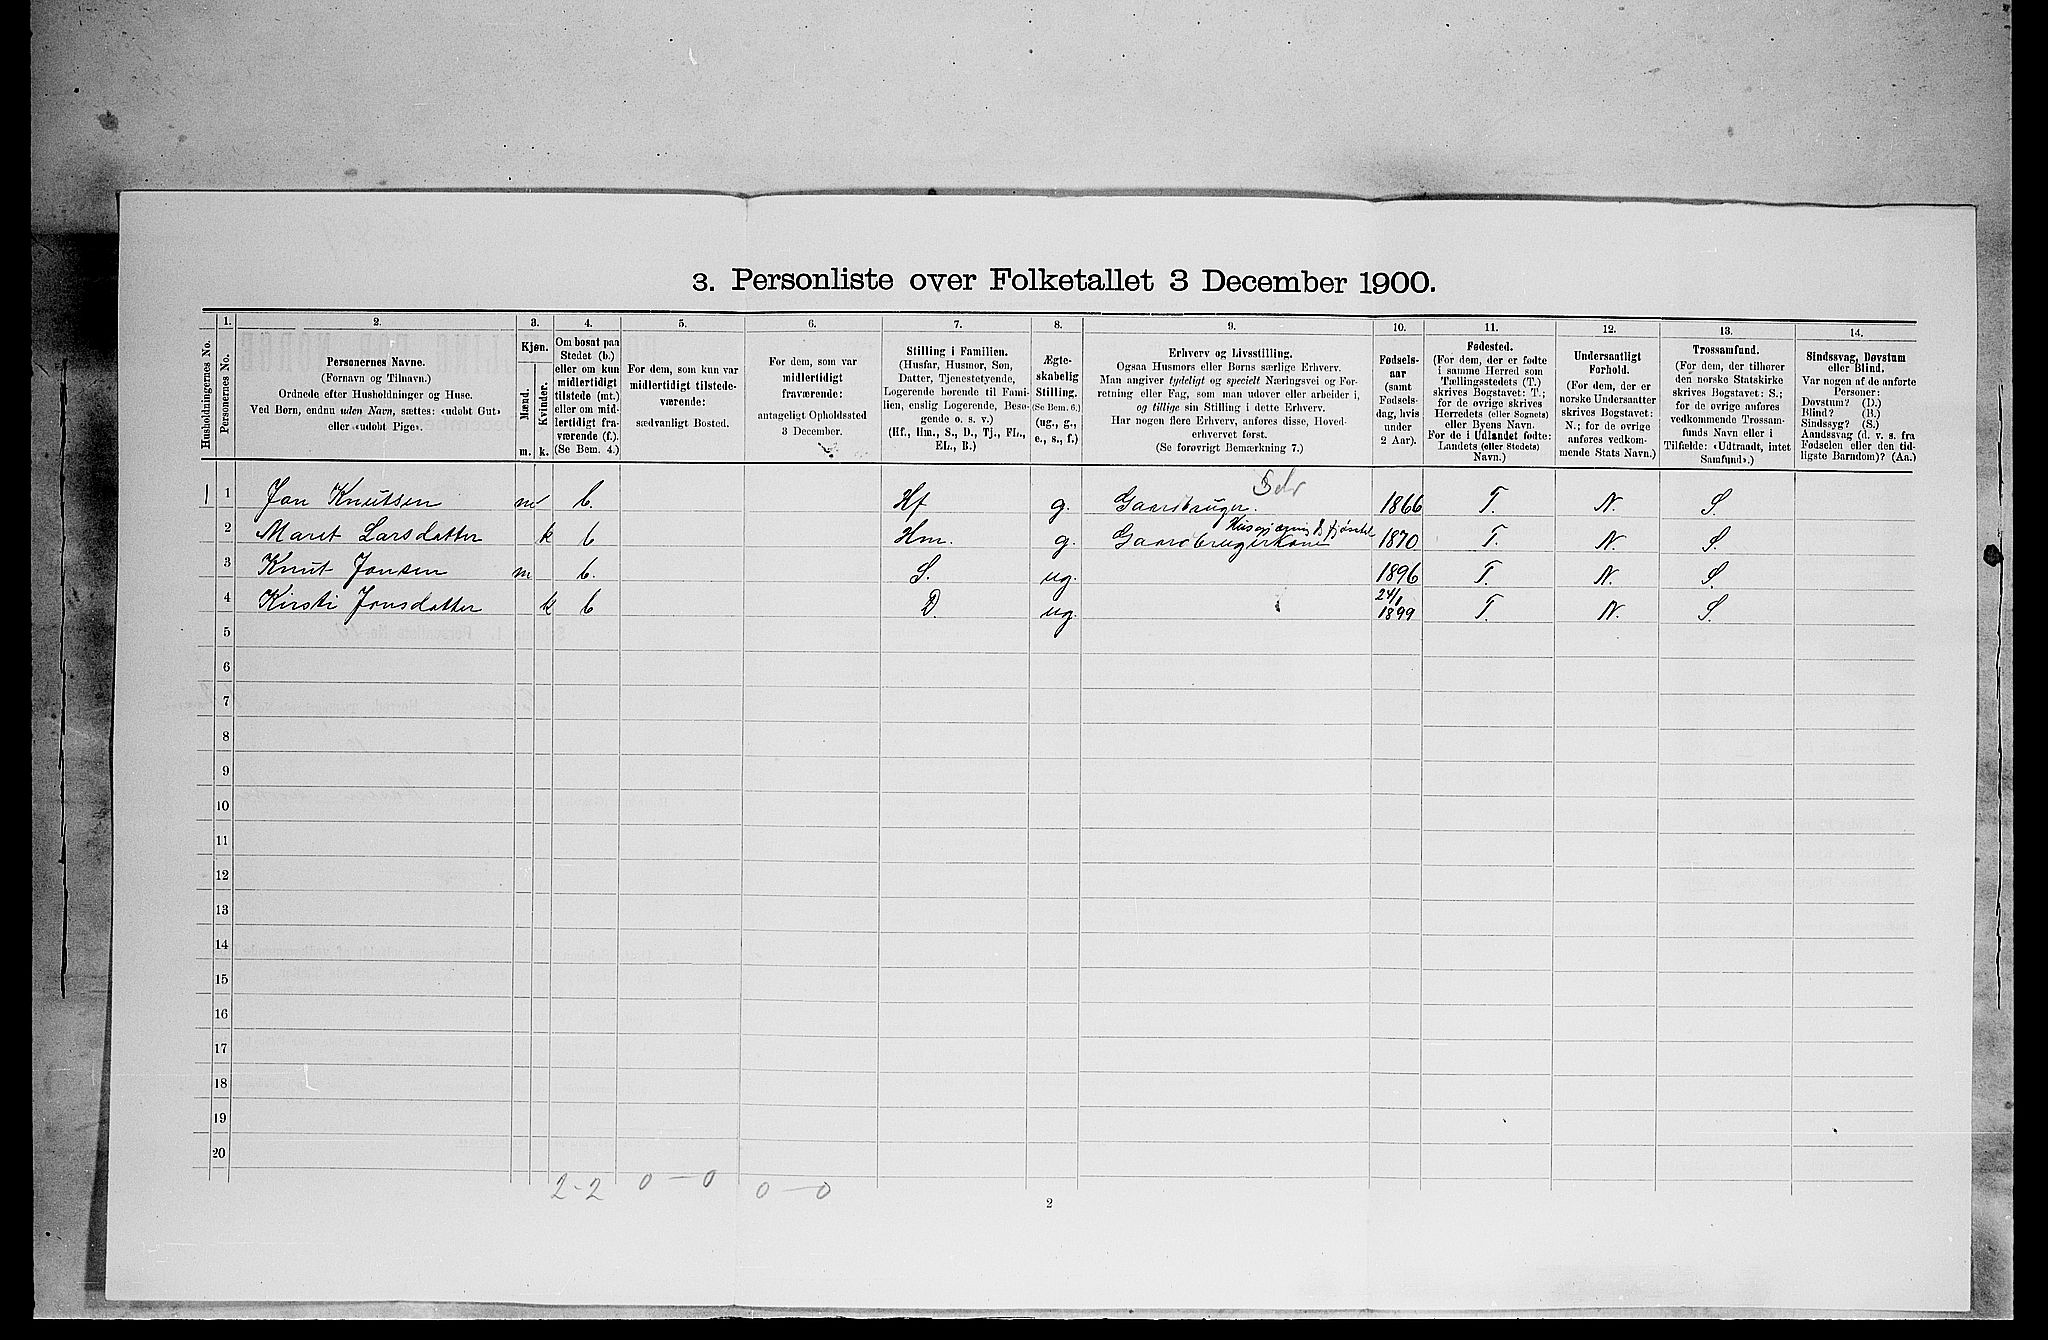 3. Personliste over Folketallet 3 December 1900.
1. 2. 3. 4. 5. 6. 7. 8. 9. 10. 11. 12. 13. 14.
Husholdningernes No.
Personernes No.
Personernes Navne.
(Fornavn og Tilnavn.)
Ordnede efter Husholdninger og Huse.
Ved Børn, endnu uden Navn, sættes: «udøbt Gut»
eller «udøbt Pige».
Kjøn.
Mænd.
Kvinder.
m. k.
Om bosat paa
Stedet (b.)
eller om kun
midlertidigt
tilstede (mt.)
eller om mid-
lertidigt fra-
værende (f.).
(Se Bem. 4.)
For dem, som kun var
midlertidigt tilstede-
værende:
sædvanligt Bosted.
For dem, som var
midlertidigt
fraværende:
antageligt Opholdssted
3 December.
Stilling i Familien.
(Husfar, Husmor, Søn,
Datter, Tjenestetyende,
Logerende hørende til Fami-
lien, enslig Logerende, Besø-
gende o. s. v.)
(Hf., Hm., S., D., Tj., FL.,
EL., B.)
Ægte-
skabelig
Stilling.
(Se Bem. 6.)
(ug., g.,
e., s., f.)
Erhverv og Livsstilling.
Ogsaa Husmors eller Børns særlige Erhverv.
Man angiver tydeligt og specielt Næringsvei og For-
retning eller Fag, som man udøver eller arbeider i,
og tillige sin Stilling i dette Erhverv.
Har nogen flere Erhverv, anføres disse, Hoved-
erhvervet først.
(Se forøvrigt Bemærkning 7.)
Fødsels-
aar
(samt
Fødsels-
dag, hvis
under
2 Aar).
Fødested.
(For dem, der er fødte
i samme Herred som
Tællingsstedets (T.)
skrives Bogstavet: T.;
for de øvrige skrives
Herredets (eller Sognets)
eller Byens Navn.
For de i Udlandet fødte:
Landets (eller Stedets)
Navn.)
Undersaatligt
Forhold.
(For dem, der er
norske Undersaatter
skrives Bogstavet:
N.; for de øvrige
anføres vedkom-
mende Stats Navn.)
Trossamfund.
(For dem, der tilhører
den norske Statskirke
skrives Bogstavet: S.;
for de øvrige anføres
vedkommende Trossam-
funds Navn eller i
Tilfælde: «Udtraadt, intet
Samfund».)
Sindssvag, Døvstum
eller Blind.
Var nogen af de anførte
Personer:
Døvstum? (D.)
Blind? (B.)
Sindssyg? (S.)
Aandssvag (d. v. s. fra
Fødselen eller den tid-
ligste Barndom)? (Aa.)
Selv
1 1 Jon Knutsen m b. Hf g. Gaardbruger. 1866 T. N. S.
Husgjerning & fjøsstel
2 Maret Larsdatter k b Hm. g. Gaardbrugerkone 1870 T. N. S.
3 Knut Jonsen m b. S. ug. 1896 T. N. S.
4 Kirsti Jonsdatter k b D. ug. 24/1 1899 T. N. S.
5
6
7
8
9
10
11
12
13
14
15
16
17
18
19
20
2-2 0-0 0-0
2